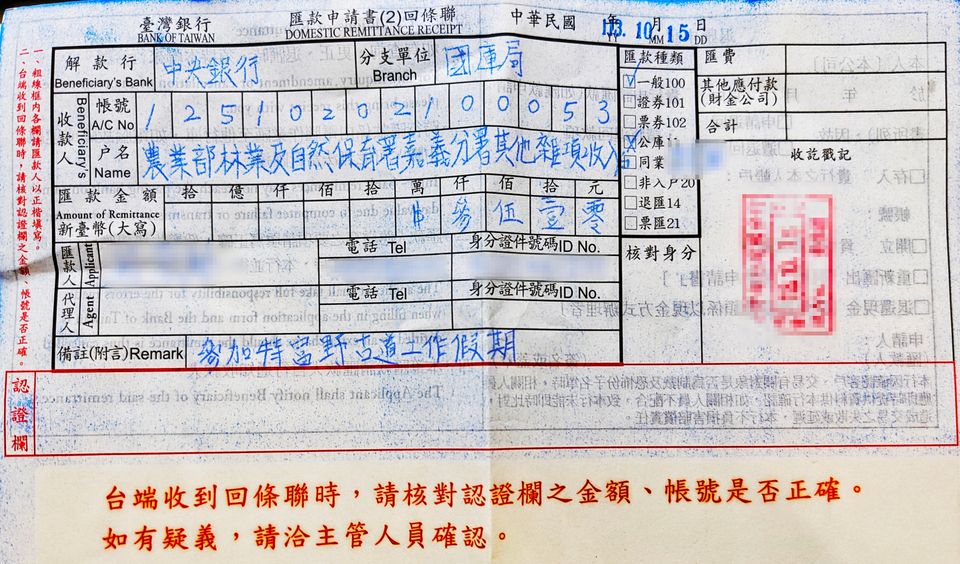 臺灣銀行 匯款申請書(2)回條聯 中華民國 年 月 日
BANK OF TAIWAN DOMESTIC REMITTANCE RECEIPT 113. 10 MM 15 DD
一、粗線框內各欄請匯款人以正楷填寫。
二、台端收到回條聯時，請核對認證欄之金額、帳號是否正確。
解款行 中央銀行 分支單位 國庫局
Beneficiary's Bank Branch
收款人 Beneficiary's
帳號 A/C No 12510202100053
戶名 Name 農業部林業及自然保育署嘉義分署其他雜項收入
匯款金額 拾 億 仟 佰 拾 萬 仟 佰 拾 元
Amount of Remittance
新臺幣(大寫) $ 參 伍 壹 零
匯款人 Applicant 電話 Tel 身分證件號碼ID No.
代理人 Agent 電話 Tel 身分證件號碼ID No.
備註(附言)Remark 參加特富野古道工作假期
匯款種類
一般100
證券101
票券102
公庫
同業
非入戶20
退匯14
票匯21
核對身分
匯費
其他應付款
(財金公司)
合計
收訖戳記
認證欄
台端收到回條聯時，請核對認證欄之金額、帳號是否正確。
如有疑義，請洽主管人員確認。